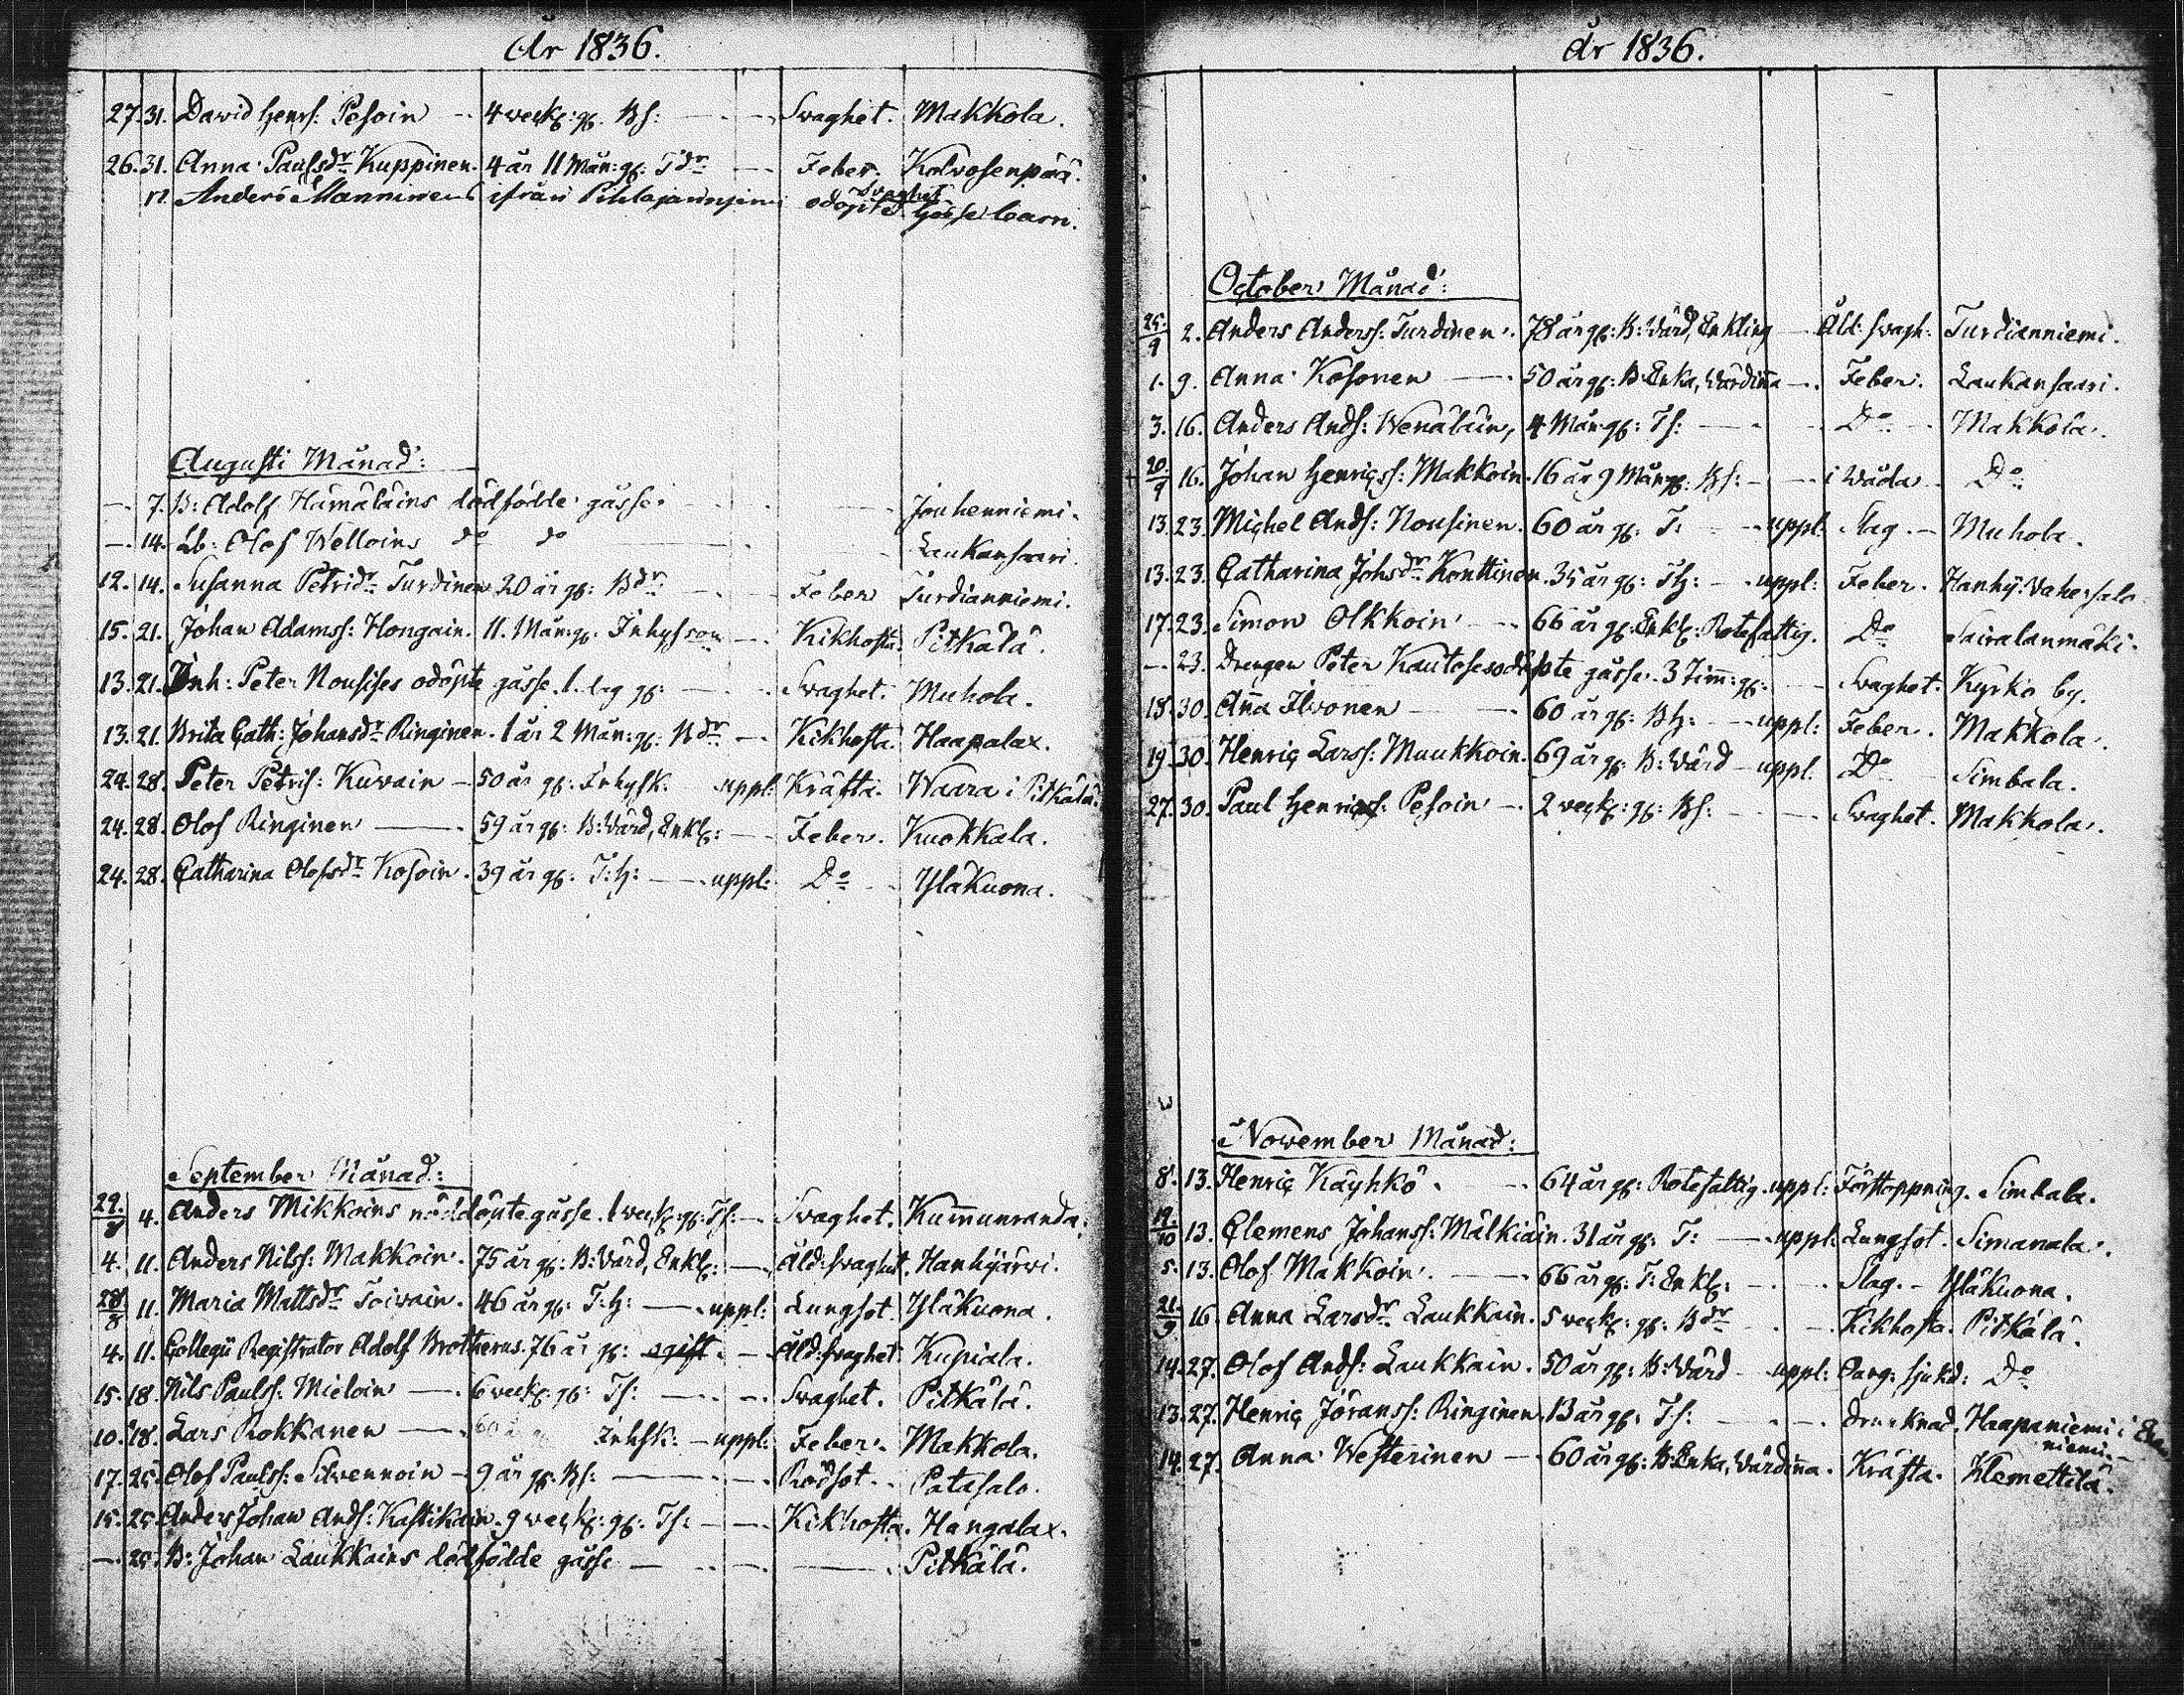 År 1836.
27. 31. David Henrs: Pesoin 4 veck: gl. Bs: Svaghet. Makkola.
26. 31. Anna Paulsdr Kuppinen. 4 år 11 Mån: gl: Tdr Feber. Kolvosenpää.
Anders Manninens ifrån odöpte Svaghet gosse barn.
Augusti Månad:
7. B: Adolf Hämäläins dödfödde gåsse Jouhenniemi.
14. Lb: Olof Welloins do do Laukansaari.
12. 14. Susanna Petridr Turdinen 20 år gl: Bdr Feber Turdianniemi.
15. 21. Johan Adamss: Hongain. 11. Mån: gl. Inhysson Kikhosta. Pitkälä.
13. 21. Inh: Peter Nousises odöpte gåsse. 1. dag gl: Svaghet. Muhola.
13. 21. Brita Cath: Johansdr Ringinen. 1 år 2 Mån: gl: Bdr Kikhosta. Haapalax.
24. 28. Peter Petris: Kuwain 50 år gl: Inhysk. uppl: Kräfta. Waara i Pitkälä.
24. 28. Olof Ringinen 59 år gl: B: Värd, Enkl: Feber. Kuokkala.
24. 28. Catharina Olofsdr Kosoin. 39 år gl: T: H: uppl: Do Yläkuona.
September Månad:
29./8 4. Anders Mikkoins nöddöpte gåsse. 1 veck: gl: Ts: Svaghet. Kummunranda.
4. 11. Anders Nilss: Makkoin. 75 år gl: B: Värd, Enkl: Äld: svaghet. Hanhijärvi.
28/8 11. Maria Mattsdr Toiwain. 46 år gl: T: H: uppl: Lungsot. Yläkuona.
4. 11. Collegii Registrator Adolf Brotherus. 76 år gl: ogift. Äld: svaghet Kupiala.
15. 18. Nils Paulss: Mieloin 6 veck: gl: Ts: Svaghet. Pitkälä.
10. 18. Lars Rokkanen 60 Inhsk: uppl: Feber. Makkola.
17. 25. Olof Paulss: Silvennoin 9 år gl: Bs: Rödsot. Patasalo.
15. 25. Anders Johan Ands: Kastikain. 9 veck: gl: Ts: Kikhosta. Hangalax.
25. B: Johan Laukkains dödfödde gåsse Pitkälä.
År 1836.
October Månad:
25./9 2. Anders Anderss: Turdinen. 78 år gl: B: Värd, Enkling Äld: svagh: Turdianniemi.
1. 9. Anna Kosonen 50 år gl: B: Enka, Värdinna Feber. Laukansaari.
3. 16. Anders Ands: Wenäläin, 4 Mån: gl: Ts: Do Makkola.
20/9 16. Johan Henricss: Makkoin. 16 år 9 Mån gl: Bs: i Wåda Do
13. 23. Michel Ands: Nousinen. 60 år gl: T: uppl: Slag. Muhola.
13. 23. Catharina Johsdr Konttinen. 35 år gl: TH: uppl: Feber. Hanhij: Vahersalo
17. 23. Simon Olkkoin 66 år gl: Enkl: Rotefattig. Do Sairalanmäki.
23. Drengen Peter Kautoses odöpte gåsse. 3 Timm: gl: Svaghet. Kyrko by.
18. 30. Anna Ilwonen 60 år gl: BH: uppl: Feber. Makkola.
19. 30. Henric Larss: Muukkoin. 69 år gl: B: Värd uppl: Do Simbala.
27. 30. Paul Henricss: Pesoin 2 veck: gl: Bs: Svaghet. Makkola.
November Månad:
8. 13. Henric Käyhkö. 64 år gl: Rotefattig. uppl: Förstoppning. Simbala.
19./10 13. Clemens Johanss: Mälkiäin. 31 år gl: T: uppl: Lungsot. Simanala.
5. 13. Olof Makkoin. 66 år gl: T: Enkl: Slag. Yläkuona.
21./9 16 Anna Larsdr Laukkain. 5 veck: gl: Bdr Kikhosta. Pitkälä.
14. 27. Olof Ands: Laukkain. 50 år gl: B: Värd uppl: Sjukd: Do
13. 27. Henric Jöranss: Ringinen. 13 år gl: Ts: Drucknad. Haapaniemi i
niemi.
14. 27. Anna Westerinen 60 år gl: B: Enka, Värdinna. Kräfta. Klemettilä.